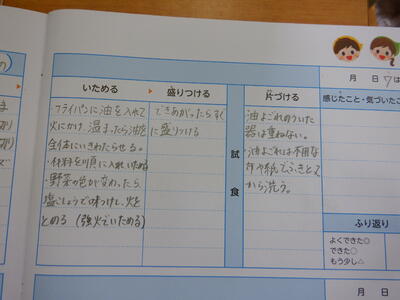 月 日
いためる
・フライパンに油を入れて
火にかけ、温まったら油を
全体にいきわたらせる。
・材料を順に入れいためる
・野菜の色が変わったら、
塩こしょうで味つけし、火を
とめる（強火でいためる）
盛りつける
できあがったらすぐ
に盛りつける
試食
片づける
油よごれのついた
器は重ねない。
・油よごれは不用な
布や紙でふきとって
から洗う。
感じたこと・気づいたこ
ふり返り
よくできた◎
できた○
もう少し△
月 日